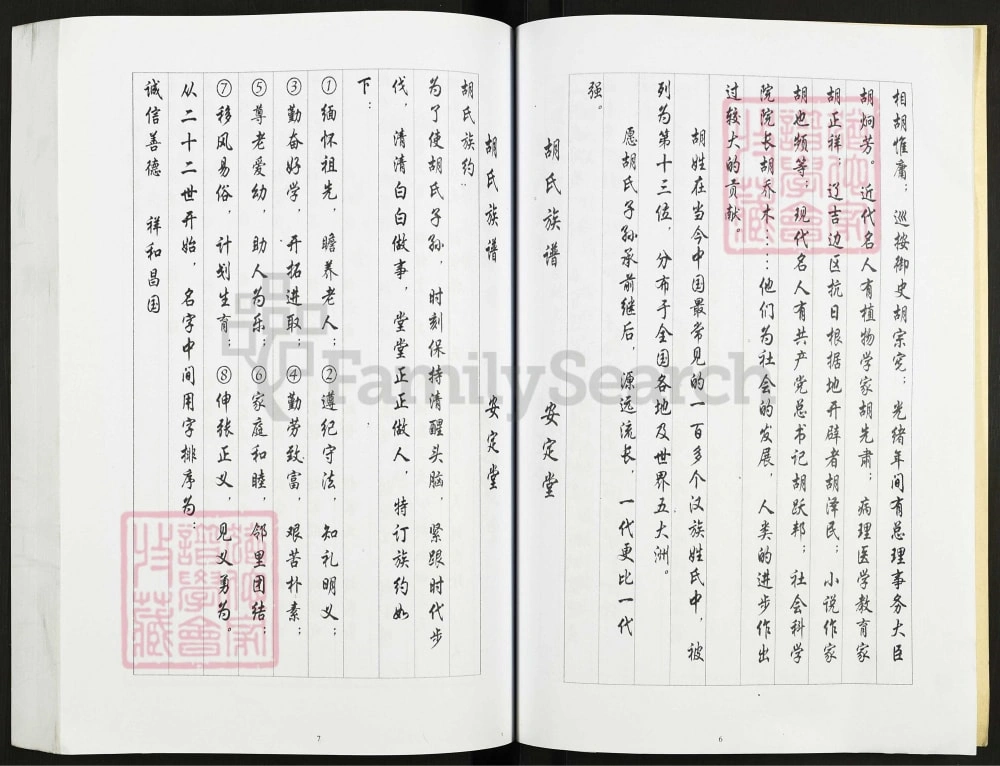 相胡惟庸；巡按御史胡宗宪；光绪年间有总理事务大臣
胡炯芳。近代名人有植物学家胡先肃；病理医学教育家
胡正祥；辽吉边区抗日根据地开辟者胡泽民；小说作家
胡也频等；现代名人有共产党总书记胡跃邦；社会科学
院院长胡乔木……他们为社会的发展，人类的进步作出
过较大的贡献。
胡姓在当今中国最常见的一百多个汉族姓氏中，被
列为第十三位，分布于全国各地及世界五大洲。
愿胡氏子孙承前继后，源远流长，一代更比一代
强。
胡氏族谱 安定堂
6
胡氏族谱 安定堂
胡氏族约
为了使胡氏子孙，时刻保持清醒头脑，紧跟时代步
伐，清清白白做事，堂堂正正做人，特订族约如
下：
①缅怀祖先，瞻养老人；②遵纪守法，知礼明义；
③勤奋好学，开拓进取；④勤劳致富，艰苦朴素；
⑤尊老爱幼，助人为乐；⑥家庭和睦，邻里团结；
⑦移风易俗，计划生育；⑧伸张正义，见义勇为。
从二十二世开始，名字中间用字排序为：
诚信善德 祥和昌国
7
FamilySearch